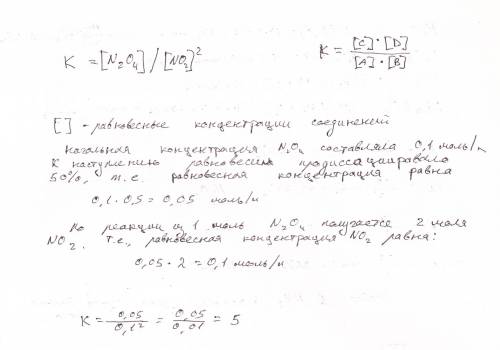 K = [N₂O₄] / [NO₂]²
K = [C]·[D] / [A]·[B]
[] - равновесные концентрации соединений
Начальная концентрация N₂O₄ составляла 0,1 моль/л
К наступлению равновесия продиссациировало
50%, т.е. равновесная концентрация равна
0,1 · 0,5 = 0,05 моль/л
По реакции из 1 моль N₂O₄ получается 2 моля
NO₂. Т.е., равновесная концентрация NO₂ равна:
0,05 · 2 = 0,1 моль/л
K = 0,05 / 0,1² = 0,05 / 0,01 = 5